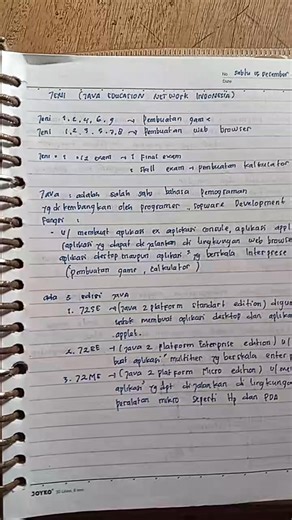 No. Sabtu 15 Desember
Date
JENI (JAVA EDUCATION NETWORK INDONESIA)
Jeni 1, 2, 4, 6, 9 → Pembuatan game
Jeni 1, 2, 3, 5, 7, 8 → Pembuatan web browser
exam → 1 Final exam
1 skill exam → pembuatan kalkulator
Java : adalah salah satu bahasa pemograman
yg di kembangkan oleh programer, sopware Development
Fungsi :
- u/ membuat aplikasi ex aplikasi console, aplikasi appl
(aplikasi yg dapat di jalankan di lingkungan web browse
aplikasi destop maupun aplikasi" yg berskala interprese
(pembuatan game, calculator)
ada 3 edisi JAVA
1. J2SE → (Java 2 platform standart edition) digu
untuk membuat aplikasi desktop dan aplika
applet.
2. J2EE → (Java 2 platform Enterprise edition) u/
buat aplikasi" multitier yg berskala enterp
3. J2ME → (Java 2 platform micro edition) u/ me
aplikasi" yg dpt di jalankan di lingkungan
peralatan mikro seperti Hp dan PDA
JOYKO